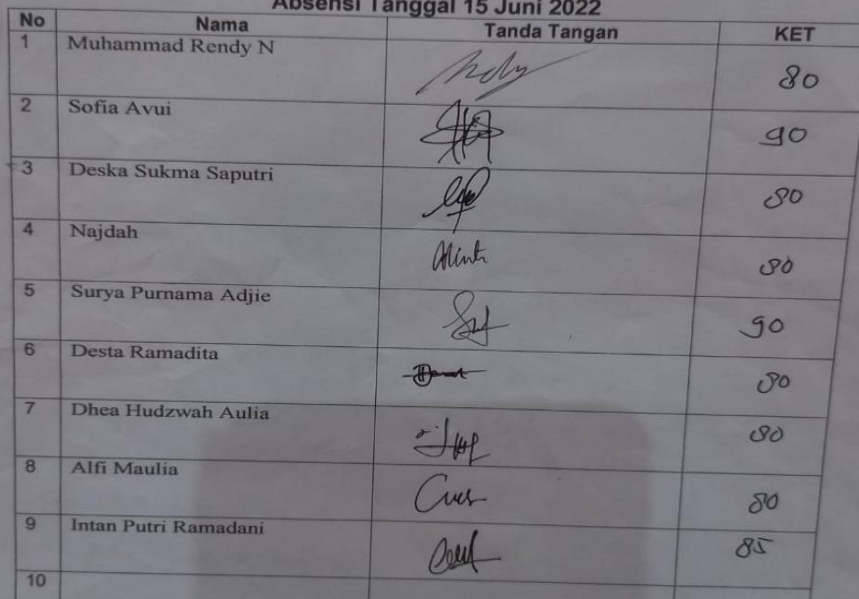 Absensi Tanggal 15 Juni 2022
No Nama Tanda Tangan KET
1 Muhammad Rendy N 80
2 Sofia Avui 90
3 Deska Sukma Saputri 80
4 Najdah 80
5 Surya Purnama Adjie 90
6 Desta Ramadita 80
7 Dhea Hudzwah Aulia 80
8 Alfi Maulia 80
9 Intan Putri Ramadani 85
10